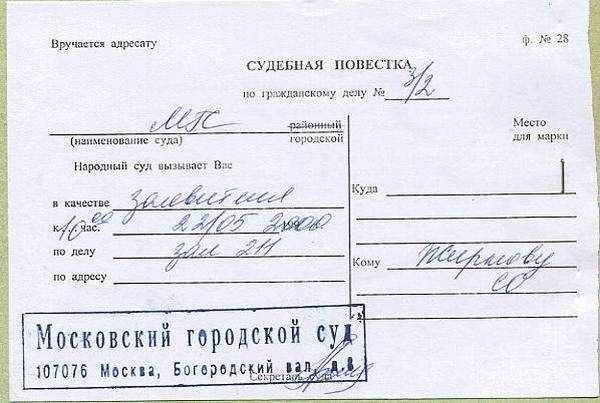 Вручается адресату
ф. № 28
СУДЕБНАЯ ПОВЕСТКА
по гражданскому делу № 3/2
МГС районный
(наименование суда) городской
Место
для марки
Народный суд вызывает Вас
в качестве заявителя
к 10 00 час. 22/05 2000
по делу зал 211
по адресу
Куда
Кому Жирнову
СО
Московский городской суд
107076 Москва, Богородский вал, д.8
Секретарь суда